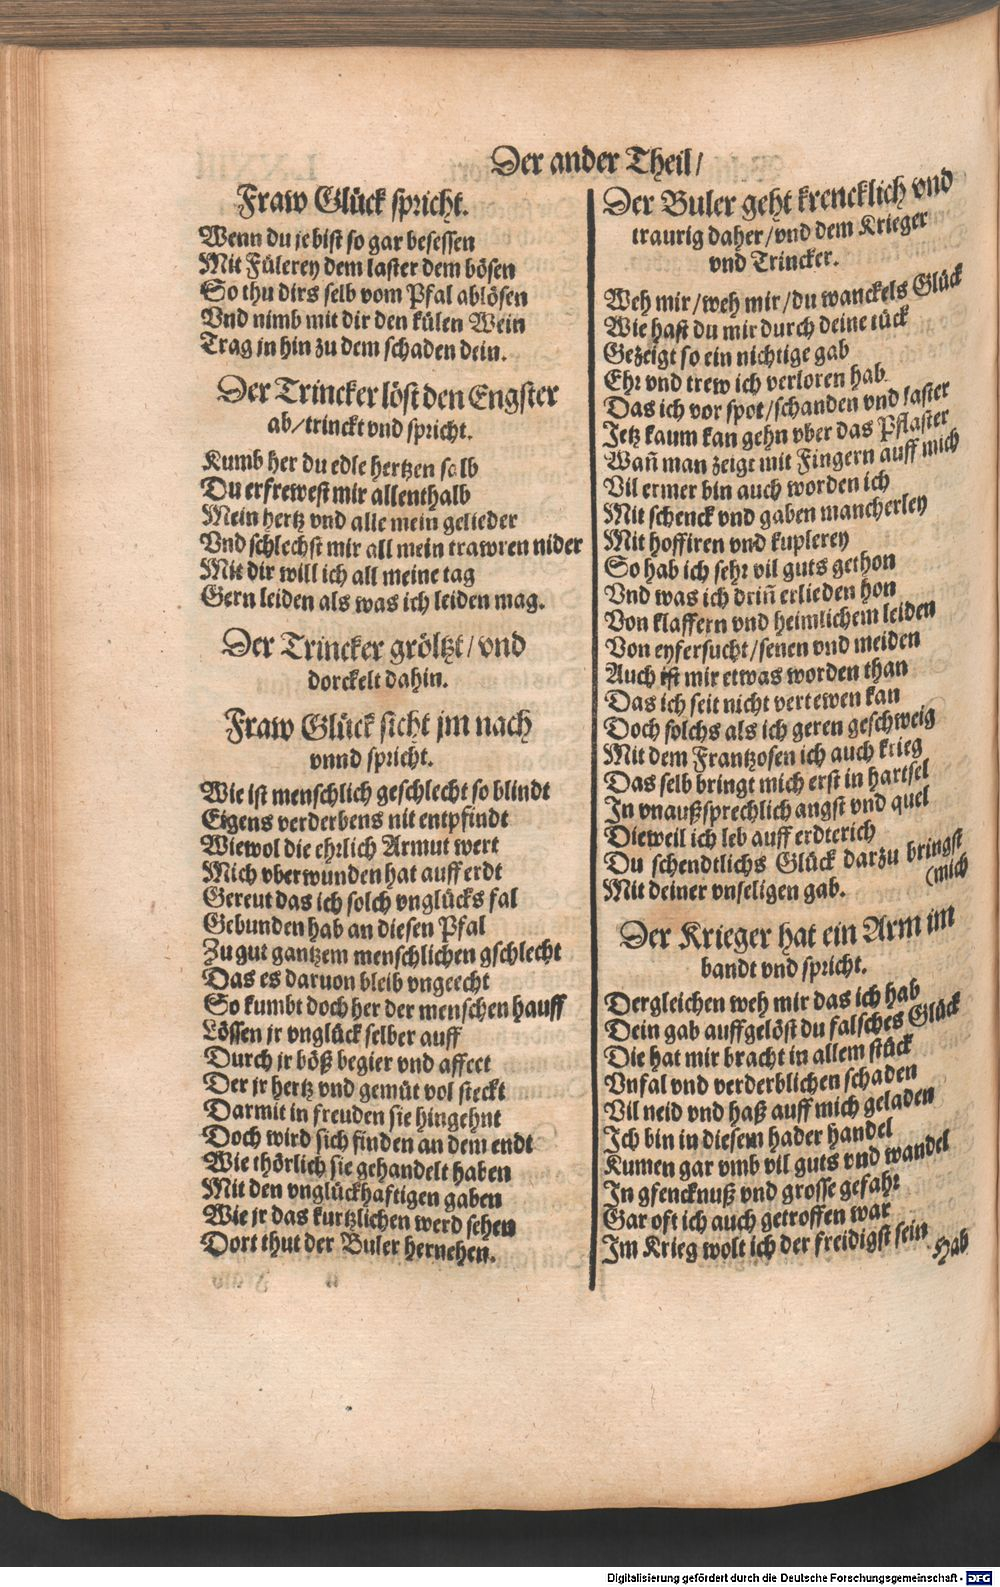 Der ander Theil/
Fraw Glück spricht.
Wenn du je bist so gar besessen
Mit Fülerey dem laster dem bösen
So thu dirs selb vom Pfal ablösen
Vnd nimb mit dir den külen Wein
Trag jn hin zu dem schaden dein.
Der Trincker löst den Engster
ab/trinckt vnd spricht.
Kumb her du edle hertzen salb
Du erfrewest mir allenthalb
Mein hertz vnd alle mein gelieder
Vnd schlechst mir all mein trawren nider
Mit dir will ich all meine tag
Gern leiden als was ich leiden mag.
Der Trincker gröltzt/vnd
dorckelt dahin.
Fraw Glück sicht jm nach
vnnd spricht.
Wie ist menschlich geschlecht so blindt
Eigens verderbens nit entpfindt
Wiewol die ehrlich Armut wert
Mich vberwunden hat auff erdt
Gereut das ich solch vnglücks fal
Gebunden hab an diesen Pfal
Zu gut gantzem menschlichen gschlecht
Das es daruon bleib vngeecht
So kumbt doch her der menschen hauff
Lössen jr vnglück selber auff
Durch jr böß begier vnd affect
Der jr hertz vnd gemüt vol steckt
Darmit in freuden sie hingehnt
Doch wird sich finden an dem endt
Wie thörlich sie gehandelt haben
Mit den vnglückhaftigen gaben
Wie jr das kurtzlichen werd sehen
Dort thut der Buler hernehen.
Der Buler geht krencklich vnd
traurig daher/vnd dem Krieger
vnd Trincker.
Weh mir/weh mir/du wanckels Glück
Wie hast du mir durch deine tück
Gezeigt so ein nichtige gab
Ehr vnd trew ich verloren hab
Das ich vor spot/schanden vnd laster
Jetz kaum kan gehn vber das Pflaster
Wañ man zeigt mit Fingern auff mich
Vil ermer bin auch worden ich
Mit schenck vnd gaben mancherley
Mit hoffiren vnd kuplerey
So hab ich sehr vil guts gethon
Vnd was ich driñ erlieden hon
Von klaffern vnd heimlichem leiden
Von eyfersucht/senen vnd meiden
Auch ist mir etwas worden than
Das ich seit nicht vertewen kan
Doch solchs als ich geren geschweig
Mit dem Frantzosen ich auch krieg
Das selb bringt mich erst in hartsel
In vnaußsprechlich angst vnd quel
Dieweil ich leb auff erdterich
Du schendtlichs Glück darzu bringst
(mich
Mit deiner vnseligen gab.
Der Krieger hat ein Arm im
bandt vnd spricht.
Dergleichen weh mir das ich hab
Dein gab auffgelöst du falsches Glück
Die hat mir bracht in allem stück
Vnfal vnd verderblichen schaden
Vil neid vnd haß auff mich geladen
Ich bin in diesem hader handel
Kumen gar vmb vil guts vnd wandel
In gfencknuß vnd grosse gefahr
Gar oft ich auch getroffen war
Im Krieg wolt ich der freidigst sein
Hab
Digitalisierung gefördert durch die Deutsche Forschungsgemeinschaft - DFG